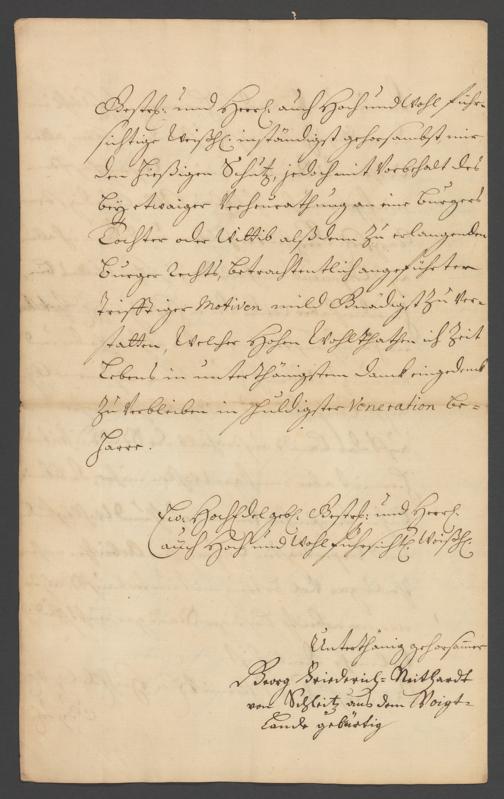 Gestr: und Herrl: auch Hoch und Wohl fürsichtige
Weißh: inständigst gehorsambst mir
den hießigen Schutz, jedoch mit Vorbehalt des
bey etwaiger Verheurathung an eine Burgers
Tochter oder Wittib alßdenn zu erlangenden
Burger Rechts, betrachtentlich angeführter
trifftiger Motiven mild Gnädigst zu ver-
statten, Welcher Hohen Wohlthaten ich Zeit
Lebens in unterthänigstem danck eingedenck
zu verbleiben in schuldigster Veneration be-
harre.
Ew: HochEdelgeb: Gestr: und Herrl:
auch Hoch und Wohl fürsichtl: Weißh:
Unterthänig gehorsamer
Georg Friederich Neithardt
von Schleitz aus dem Voigt-
Lande gebürtig